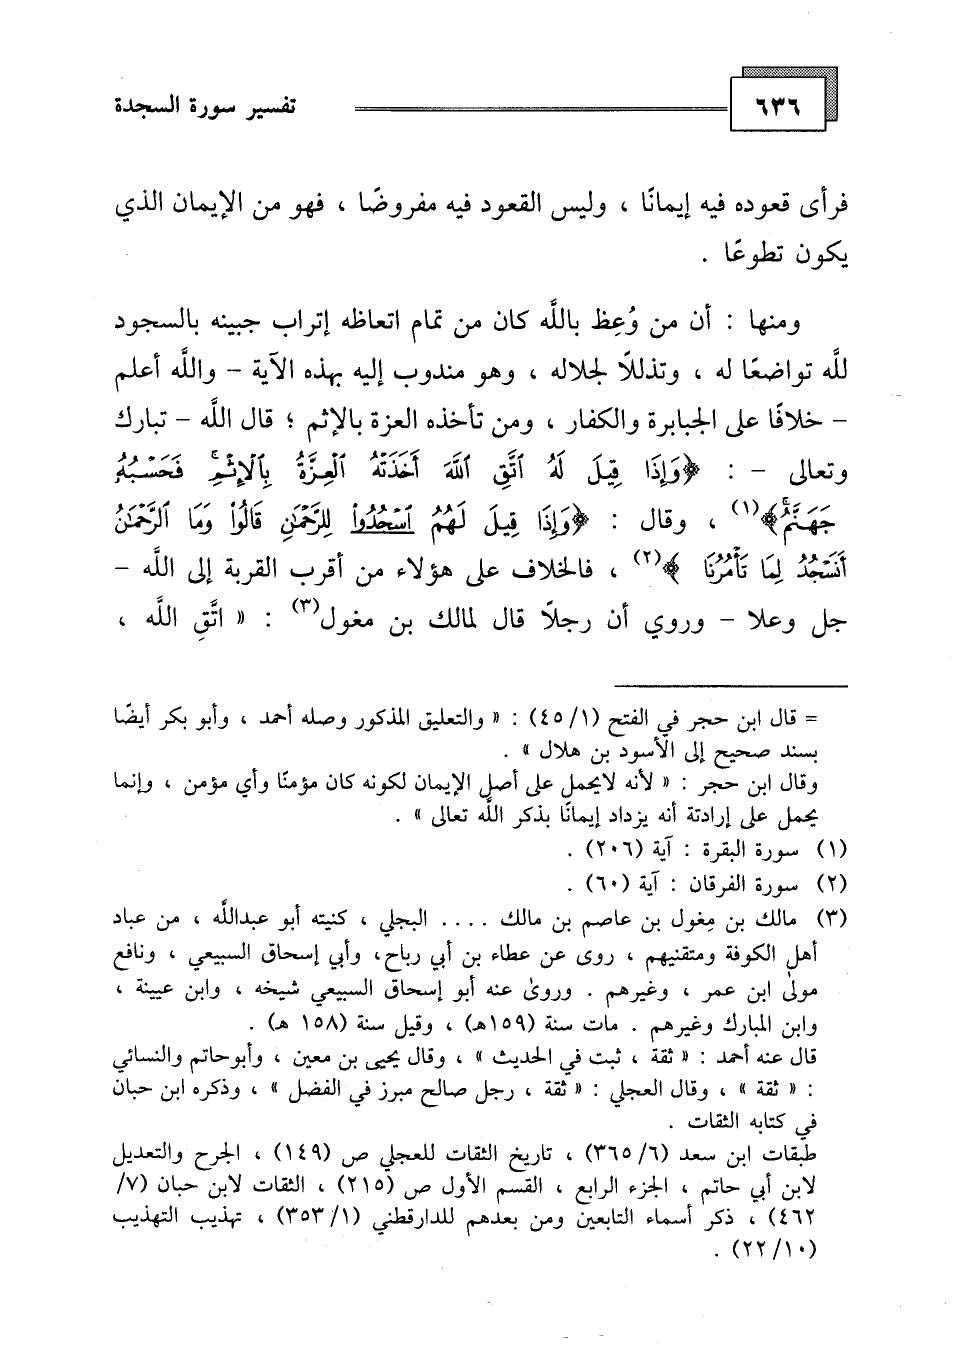 ٦٣٦ تفسير سورة السجدة
فرأى قعوده فيه إيمانًا ، وليس القعود فيه مفروضًا ، فهو من الإيمان الذي
يكون تطوعًا .
ومنها : أن من وُعِظ باللَّه كان من تمام اتعاظه إتراب جبينه بالسجود
للَّه تواضعًا له ، وتذللًا لجلاله ، وهو مندوب إليه بهذه الآية – واللَّه أعلم
– خلافًا على الجبابرة والكفار ، ومن تأخذه العزة بالإثم ؛ قال اللَّه – تبارك
وتعالى – : ﴿وَإِذَا قِيلَ لَهُ ٱتَّقِ ٱللَّهَ أَخَذَتْهُ ٱلْعِزَّةُ بِٱلْإِثْمِۚ فَحَسْبُهُۥ
جَهَنَّمُۚ﴾(١) ، وقال : ﴿وَإِذَا قِيلَ لَهُمُ ٱسْجُدُوا۟ لِلرَّحْمَٰنِ قَالُوا۟ وَمَا ٱلرَّحْمَٰنُ
أَنَسْجُدُ لِمَا تَأْمُرُنَا ﴾(٢) ، فالخلاف على هؤلاء من أقرب القربة إلى اللَّه –
جل وعلا – وروي أن رجلًا قال لمالك بن مغول(٣) : « اتَّقِ اللَّه ،
= قال ابن حجر في الفتح (١/ ٤٥) : « والتعليق المذكور وصله أحمد ، وأبو بكر أيضًا
بسند صحيح إلى الأسود بن هلال » .
وقال ابن حجر : « لأنه لايحمل على أصل الإيمان لكونه كان مؤمنًا وأي مؤمن ، وإنما
يحمل على إرادتة أنه يزداد إيمانًا بذكر اللَّه تعالى » .
(١) سورة البقرة : آية (٢٠٦) .
(٢) سورة الفرقان : آية (٦٠) .
(٣) مالك بن مِغول بن عاصم بن مالك .... البجلي ، كنيته أبو عبداللَّه ، من عباد
أهل الكوفة ومتقنيهم ، روى عن عطاء بن أبي رباح، وأبي إسحاق السبيعي ، ونافع
مولىٰ ابن عمر ، وغيرهم . وروىٰ عنه أبو إسحاق السبيعي شيخه ، وابن عيينة ،
وابن المبارك وغيرهم . مات سنة (١٥٩هـ) ، وقيل سنة (١٥٨ هـ) .
قال عنه أحمد : « ثقة ، ثبت في الحديث » ، وقال يحيى بن معين ، وأبوحاتم والنسائي
: « ثقة » ، وقال العجلي : « ثقة ، رجل صالح مبرز في الفضل » ، وذكره ابن حبان
في كتابه الثقات .
طبقات ابن سعد (٦/ ٣٦٥) ، تاريخ الثقات للعجلي ص (١٤٩) ، الجرح والتعديل
لابن أبي حاتم ، الجزء الرابع ، القسم الأول ص (٢١٥) ، الثقات لابن حبان (٧/
٤٦٢) ، ذكر أسماء التابعين ومن بعدهم للدارقطني (١/ ٣٥٣) ، تهذيب التهذيب
(١٠/ ٢٢) .